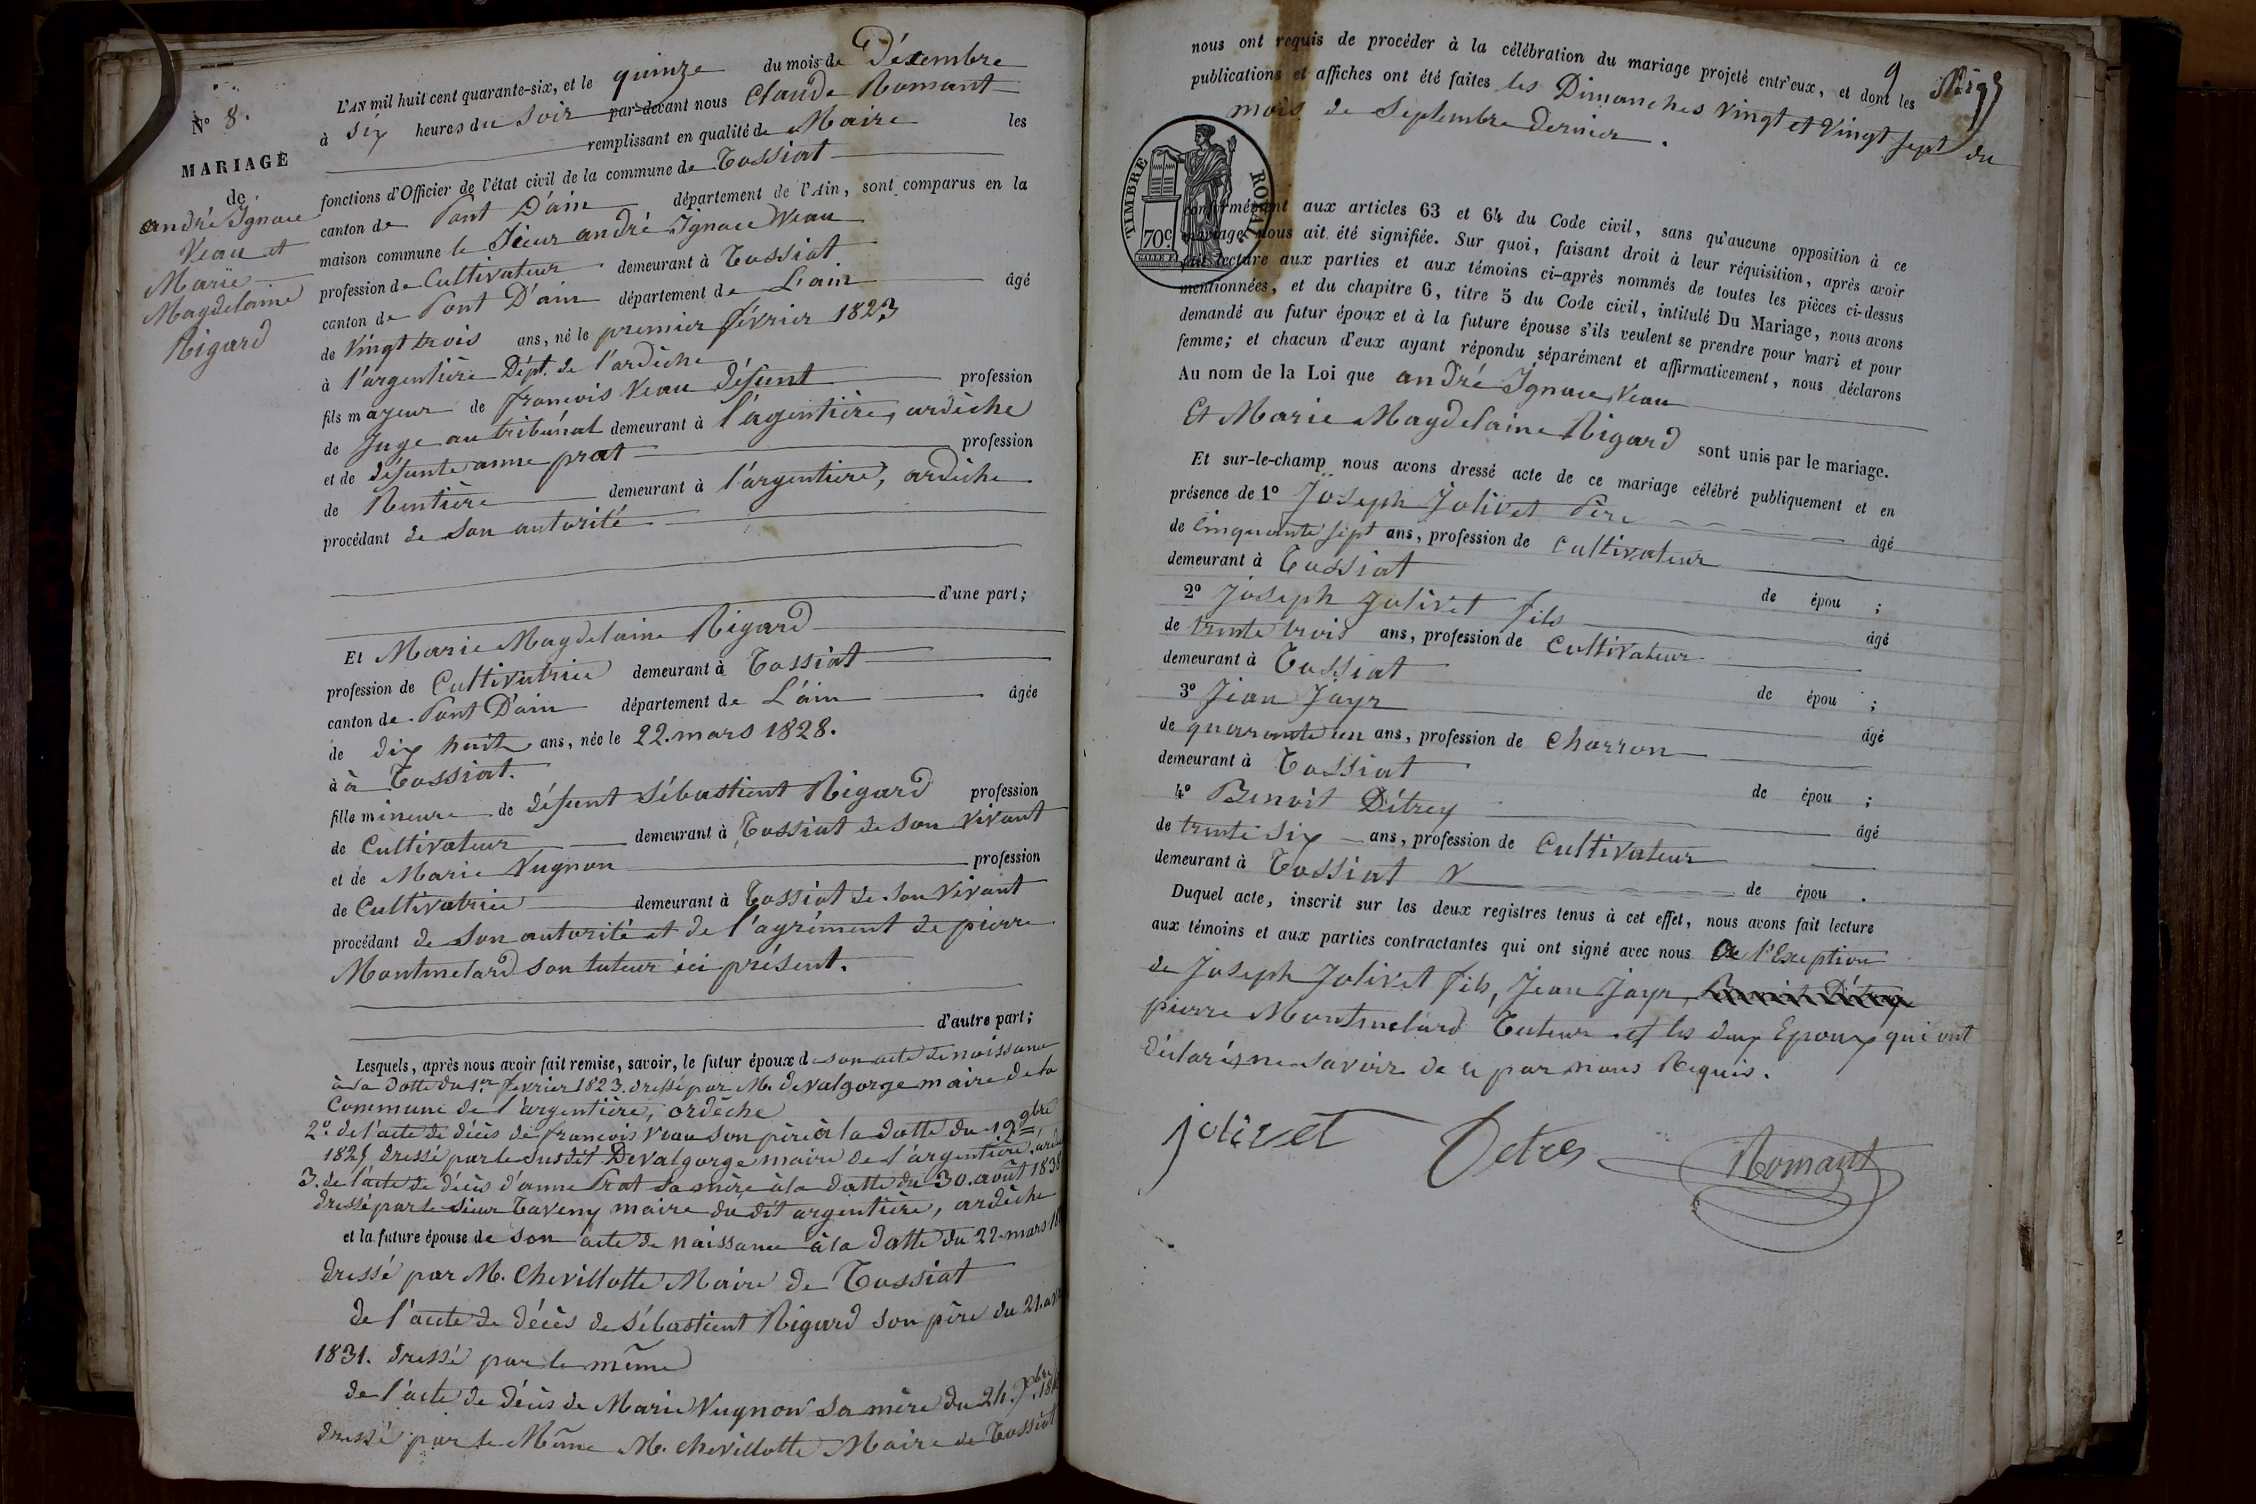 N° 8.
MARIAGE
de
andré Ignace
Veau et
Marie
Magdelaine
Rigard
L'AN mil huit cent quarante-six, et le quinze du mois de Décembre
à six heures du soir par-devant nous Claude Romant
remplissant en qualité de Maire les
fonctions d'Officier de l'état civil de la commune de Tossiat
canton de Pont D'ain département de l'Ain, sont comparus en la
maison commune le Sieur andré Ignace Veau
profession de Cultivateur demeurant à Tossiat
canton de Pont D'ain département de L'ain âgé
de vingt trois ans, né le premier février 1823
à l'argentière Dépt. de l'ardèche
fils majeur de francois Veau défunt profession
de Juge au tribunal demeurant à l'agentière, ardèche
et de défunte anne prat profession
de Rentière demeurant à l'argentiere, ardèche
procédant de son autorité
d'une part;
Et Marie Magdelaine Rigard
profession de Cultivatrice demeurant à Tossiat
canton de Pont D'ain département de L'ain âgée
de dix huit ans, née le 22. mars 1828.
à à Tossiat.
fille mineure de défunt Sébastient Rigard profession
de Cultivateur demeurant à Tossiat de son vivant
et de Marie Vugnon profession
de Cultivatrice demeurant à Tossiat de son vivant
procédant de son autorité et de l'agrément de pierre
Montmelard son tuteur ici présent.
d'autre part;
Lesquels, après nous avoir fait remise, savoir, le futur époux de son acte de naissance
à la datte du 1er février 1823. dressé par M. devalgorge maire de la
Commune de l'argentière, ardèche
2°. de l'acte de décès de francois veau son père à la datte du 19 9bre
182 dressé par le susdit Devalgorge maire de l'argentière
3. de l'acte de décès d'anne Prat sa mère à la datte du 30. août 1838
dressé par le sieur Taveny maire du dit argentière, ardèche
et la future épouse de son acte de naissance à la datte du 22. mars
dressé par M. Chevillotte Maire de Tossiat
de l'acte de décès de Sébastient Rigard son père du 21.
1831. dressé par le même
de l'acte de décès de Marie Vugnon sa mère du 24.
dressé par le Même M. chevillotte Maire de Tossiat
9
nous ont requis de procéder à la célébration du mariage projeté entr'eux, et dont les
publications et affiches ont été faites les Dimanches vingt et vingt sept du
mois de Septembre dernier.
TIMBRE ROYAL
70c
conformément aux articles 63 et 64 du Code civil, sans qu'aucune opposition à ce
mariage nous ait été signifiée. Sur quoi, faisant droit à leur réquisition, après avoir
fait lecture aux parties et aux témoins ci-après nommés de toutes les pièces ci-dessus
mentionnées, et du chapitre 6, titre 5 du Code civil, intitulé Du Mariage, nous avons
demandé au futur époux et à la future épouse s'ils veulent se prendre pour mari et pour
femme; et chacun d'eux ayant répondu séparément et affirmativement, nous déclarons
Au nom de la Loi que andré Ignace Veau
Et Marie Magdelaine Rigard sont unis par le mariage.
Et sur-le-champ nous avons dressé acte de ce mariage célébré publiquement et en
présence de 1° Joseph Jolivet Père âgé
de cinquante sept ans, profession de Cultivateur
demeurant à Tossiat de épou ;
2° Joseph Jolivet fils âgé
de trente trois ans, profession de Cultivateur
demeurant à Tossiat de épou ;
3° Jean Jayr âgé
de quarante un ans, profession de Charron
demeurant à Tossiat de épou ;
4° Benoit Détrey âgé
de trente six ans, profession de Cultivateur
demeurant à Tossiat de épou .
Duquel acte, inscrit sur les deux registres tenus à cet effet, nous avons fait lecture
aux témoins et aux parties contractantes qui ont signé avec nous à l'Exeption
de Joseph Jolivet fils, Jean Jayr,
pierre Montmelard Tuteur et les deux Epoux qui ont
déclarés ne savoir de ce par nous Requis.
jolivet Detres Romant